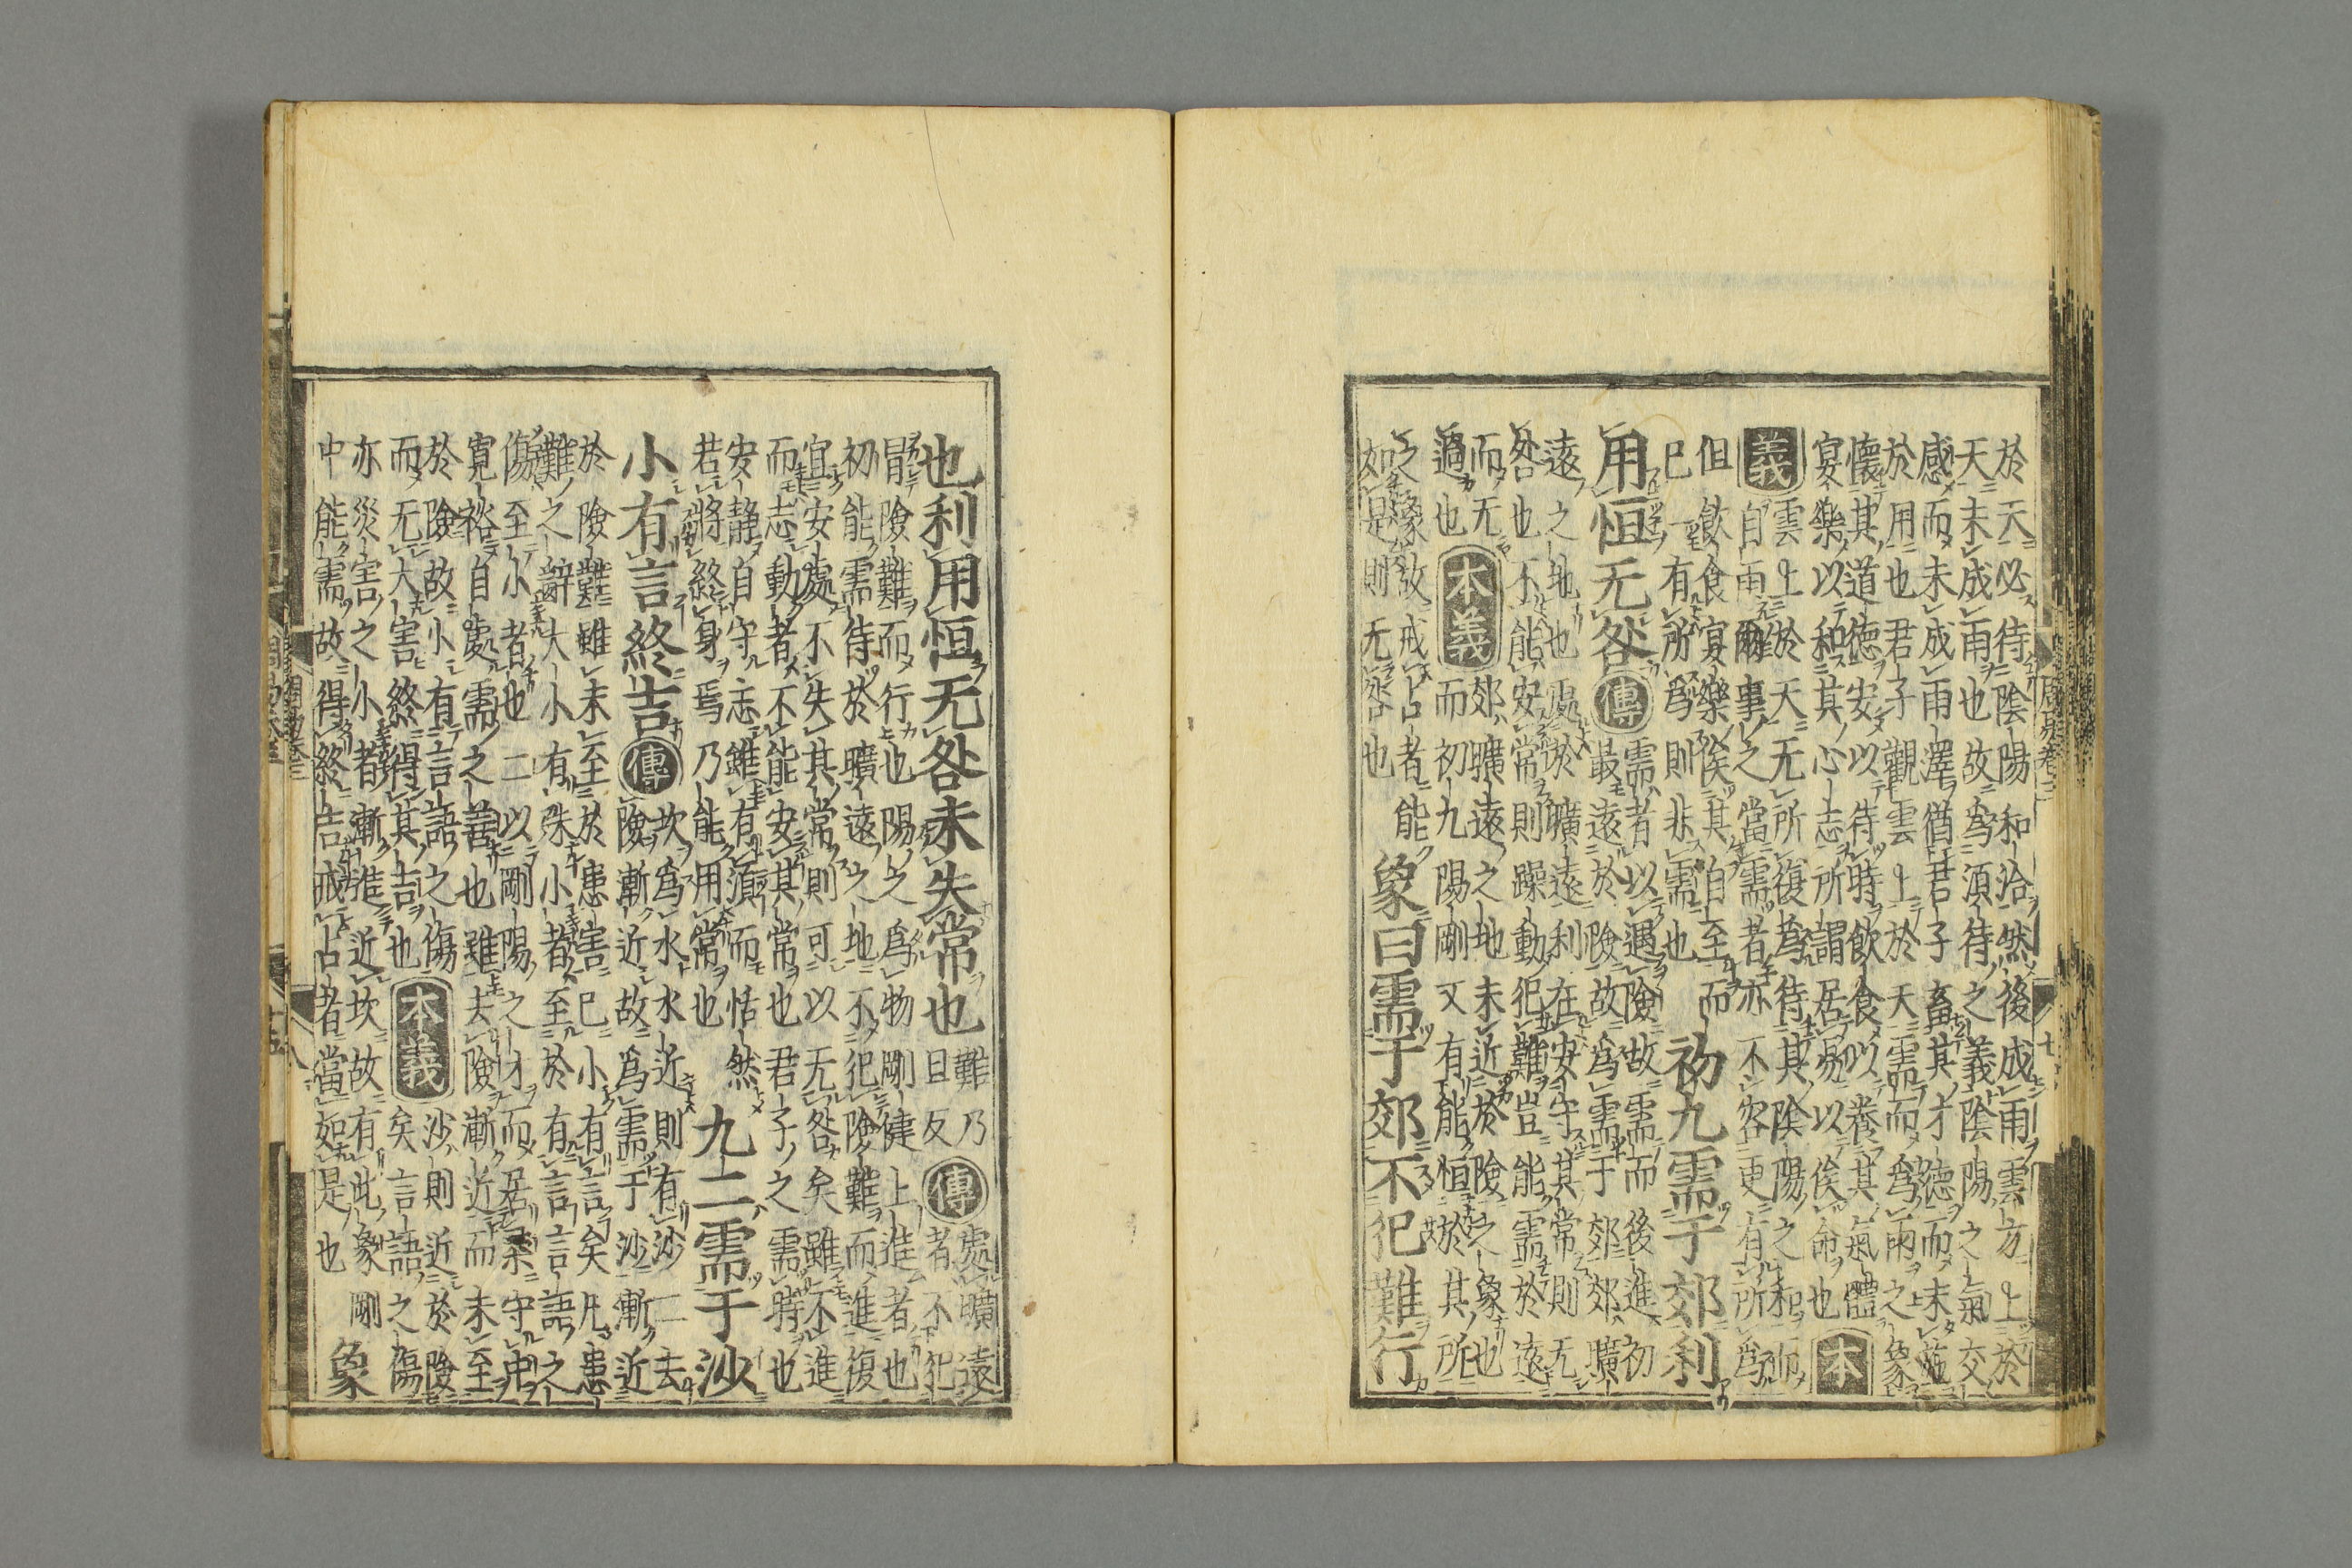 於天必待陰陽和洽然後成雨雲方上於
天未成雨也故為須待之義陰陽之氣交
感而未成雨澤猶君子畜其才德而未施
於用也君子觀雲上於天需而為雨之象
懷其道德安以待時飲食以養其氣體
宴樂以和其心志所謂居易以俟命也 本
義 雲上於天无所復為待其陰陽之和而
自雨爾事之當需者亦不容更有所為
但飲食宴樂俟其自至而
已一有所為則非需也
初九需于郊利
用恒无咎 傳 需者以遇險故需而後進初
最遠於險故為需于郊郊曠
遠之地也處於曠遠利在安守其常則无
咎也不能安常則躁動犯難豈能需於遠
而无
過也 本義 郊曠遠之地未近於險之象也
而初九陽剛又有能恒於其所
之象故戒占者能
如是則无咎也
象曰需于郊不犯難行
也利用恒无咎未失常也 難乃
旦反 傳 處曠遠
者不犯
冒險難而行也陽之為物剛健上進者也
初能需待於曠遠之地不犯險難而進復
宜安處不失其常則可以无咎矣雖不進
而志動者不能安其常也君子之需時也
安靜自守志雖有須而恬然
若將終身焉乃能用常也
九二需于沙
小有言終吉 傳 坎為水水近則有沙二去
險漸近故為需于沙漸近
於險難雖未至於患害已小有言矣凡患
難之辭大小有殊小者至於有言言語之
傷至小者也二以剛陽之才而居柔守中
寬裕自處需之善也雖去險漸近而未至
於險故小有言語之傷
而无大害終得其吉也 本義 沙則近於險
矣言語之傷
亦災害之小者漸進近坎故有此象剛
中能需故得終吉戒占者當如是也
象